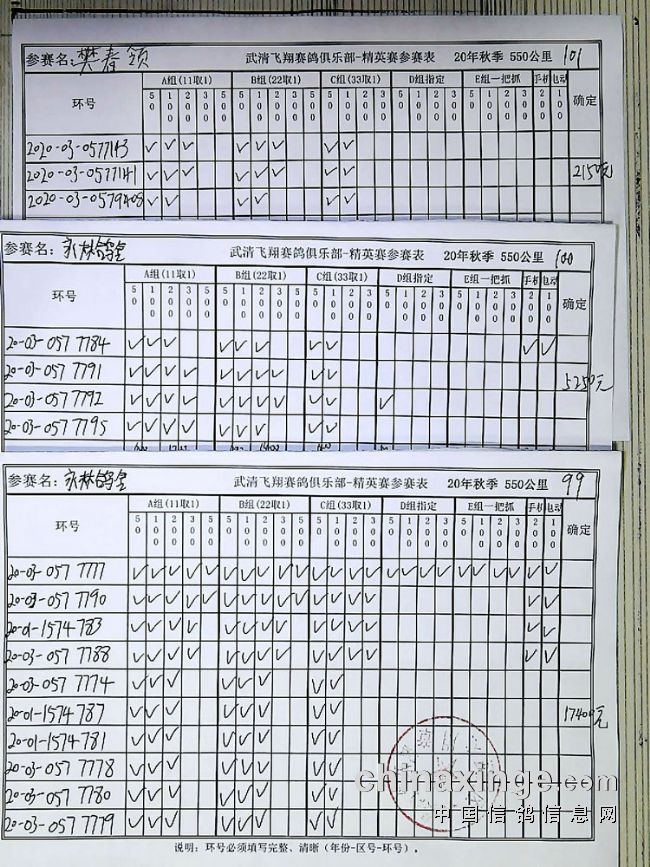 参赛名: 樊春领 武清飞翔赛鸽俱乐部-精英赛参赛表 20年秋季 550公里 101
A组(11取1) B组(22取1) C组(33取1) D组指定 E组一把抓 手机 电动
环号 50 100 200 300 50 50 100 200 300 50 50 100 200 300 50 100 200 300 50 100 200 300 200 100 确定
2020-03-0577143 ✓ ✓ ✓ ✓ ✓ ✓ ✓ ✓
2020-03-0577141 ✓ ✓ ✓ ✓ ✓ ✓ ✓ ✓ 2150元
2020-03-0579405 ✓ ✓ ✓ ✓ ✓ ✓
参赛名: 永林鸽舍 武清飞翔赛鸽俱乐部-精英赛参赛表 20年秋季 550公里 100
A组(11取1) B组(22取1) C组(33取1) D组指定 E组一把抓 手机 电动
环号 50 100 200 300 50 50 100 200 300 50 50 100 200 300 50 100 200 300 50 100 200 300 200 100 确定
20-03-057 7784 ✓ ✓ ✓ ✓ ✓ ✓ ✓ ✓ ✓ ✓
20-03-057 7791 ✓ ✓ ✓ ✓ ✓ ✓ ✓ ✓ ✓ ✓ 5250元
20-03-057 7792 ✓ ✓ ✓ ✓ ✓ ✓ ✓ ✓ ✓ ✓ ✓
20-03-057 7795 ✓ ✓ ✓ ✓ ✓ ✓ ✓ ✓ ✓ ✓
参赛名: 永林鸽舍 武清飞翔赛鸽俱乐部-精英赛参赛表 20年秋季 550公里 99
A组(11取1) B组(22取1) C组(33取1) D组指定 E组一把抓 手机 电动
环号 50 100 200 300 50 50 100 200 300 50 50 100 200 300 50 100 200 300 50 100 200 300 200 100 确定
20-03-057 7777 ✓ ✓ ✓ ✓ ✓ ✓ ✓ ✓ ✓ ✓ ✓ ✓ ✓ ✓ ✓ ✓ ✓ ✓ ✓ ✓ ✓ ✓ ✓ ✓
20-03-057 7790 ✓ ✓ ✓ ✓ ✓ ✓ ✓ ✓ ✓ ✓ ✓ ✓ ✓ ✓ ✓ ✓
20-01-1574783 ✓ ✓ ✓ ✓ ✓ ✓ ✓ ✓ ✓ ✓ ✓ ✓ ✓ ✓
20-03-057 7788 ✓ ✓ ✓ ✓ ✓ ✓ ✓ ✓ ✓ ✓ ✓ ✓ ✓ ✓
20-03-057 7774 ✓ ✓ ✓ ✓ ✓ ✓ ✓ ✓
20-01-1574787 ✓ ✓ ✓ ✓ ✓ ✓ ✓ ✓ 17400元
20-01-1574781 ✓ ✓ ✓ ✓ ✓ ✓ ✓ ✓
20-03-057 7778 ✓ ✓ ✓ ✓ ✓ ✓ ✓ ✓
20-03-057 7780 ✓ ✓ ✓ ✓ ✓ ✓ ✓ ✓
20-03-057 7779 ✓ ✓ ✓ ✓ ✓ ✓ ✓ ✓
说明: 环号必须填写完整、清晰 (年份-区号-环号).
chinaxinge.com
中国信鸽信息网